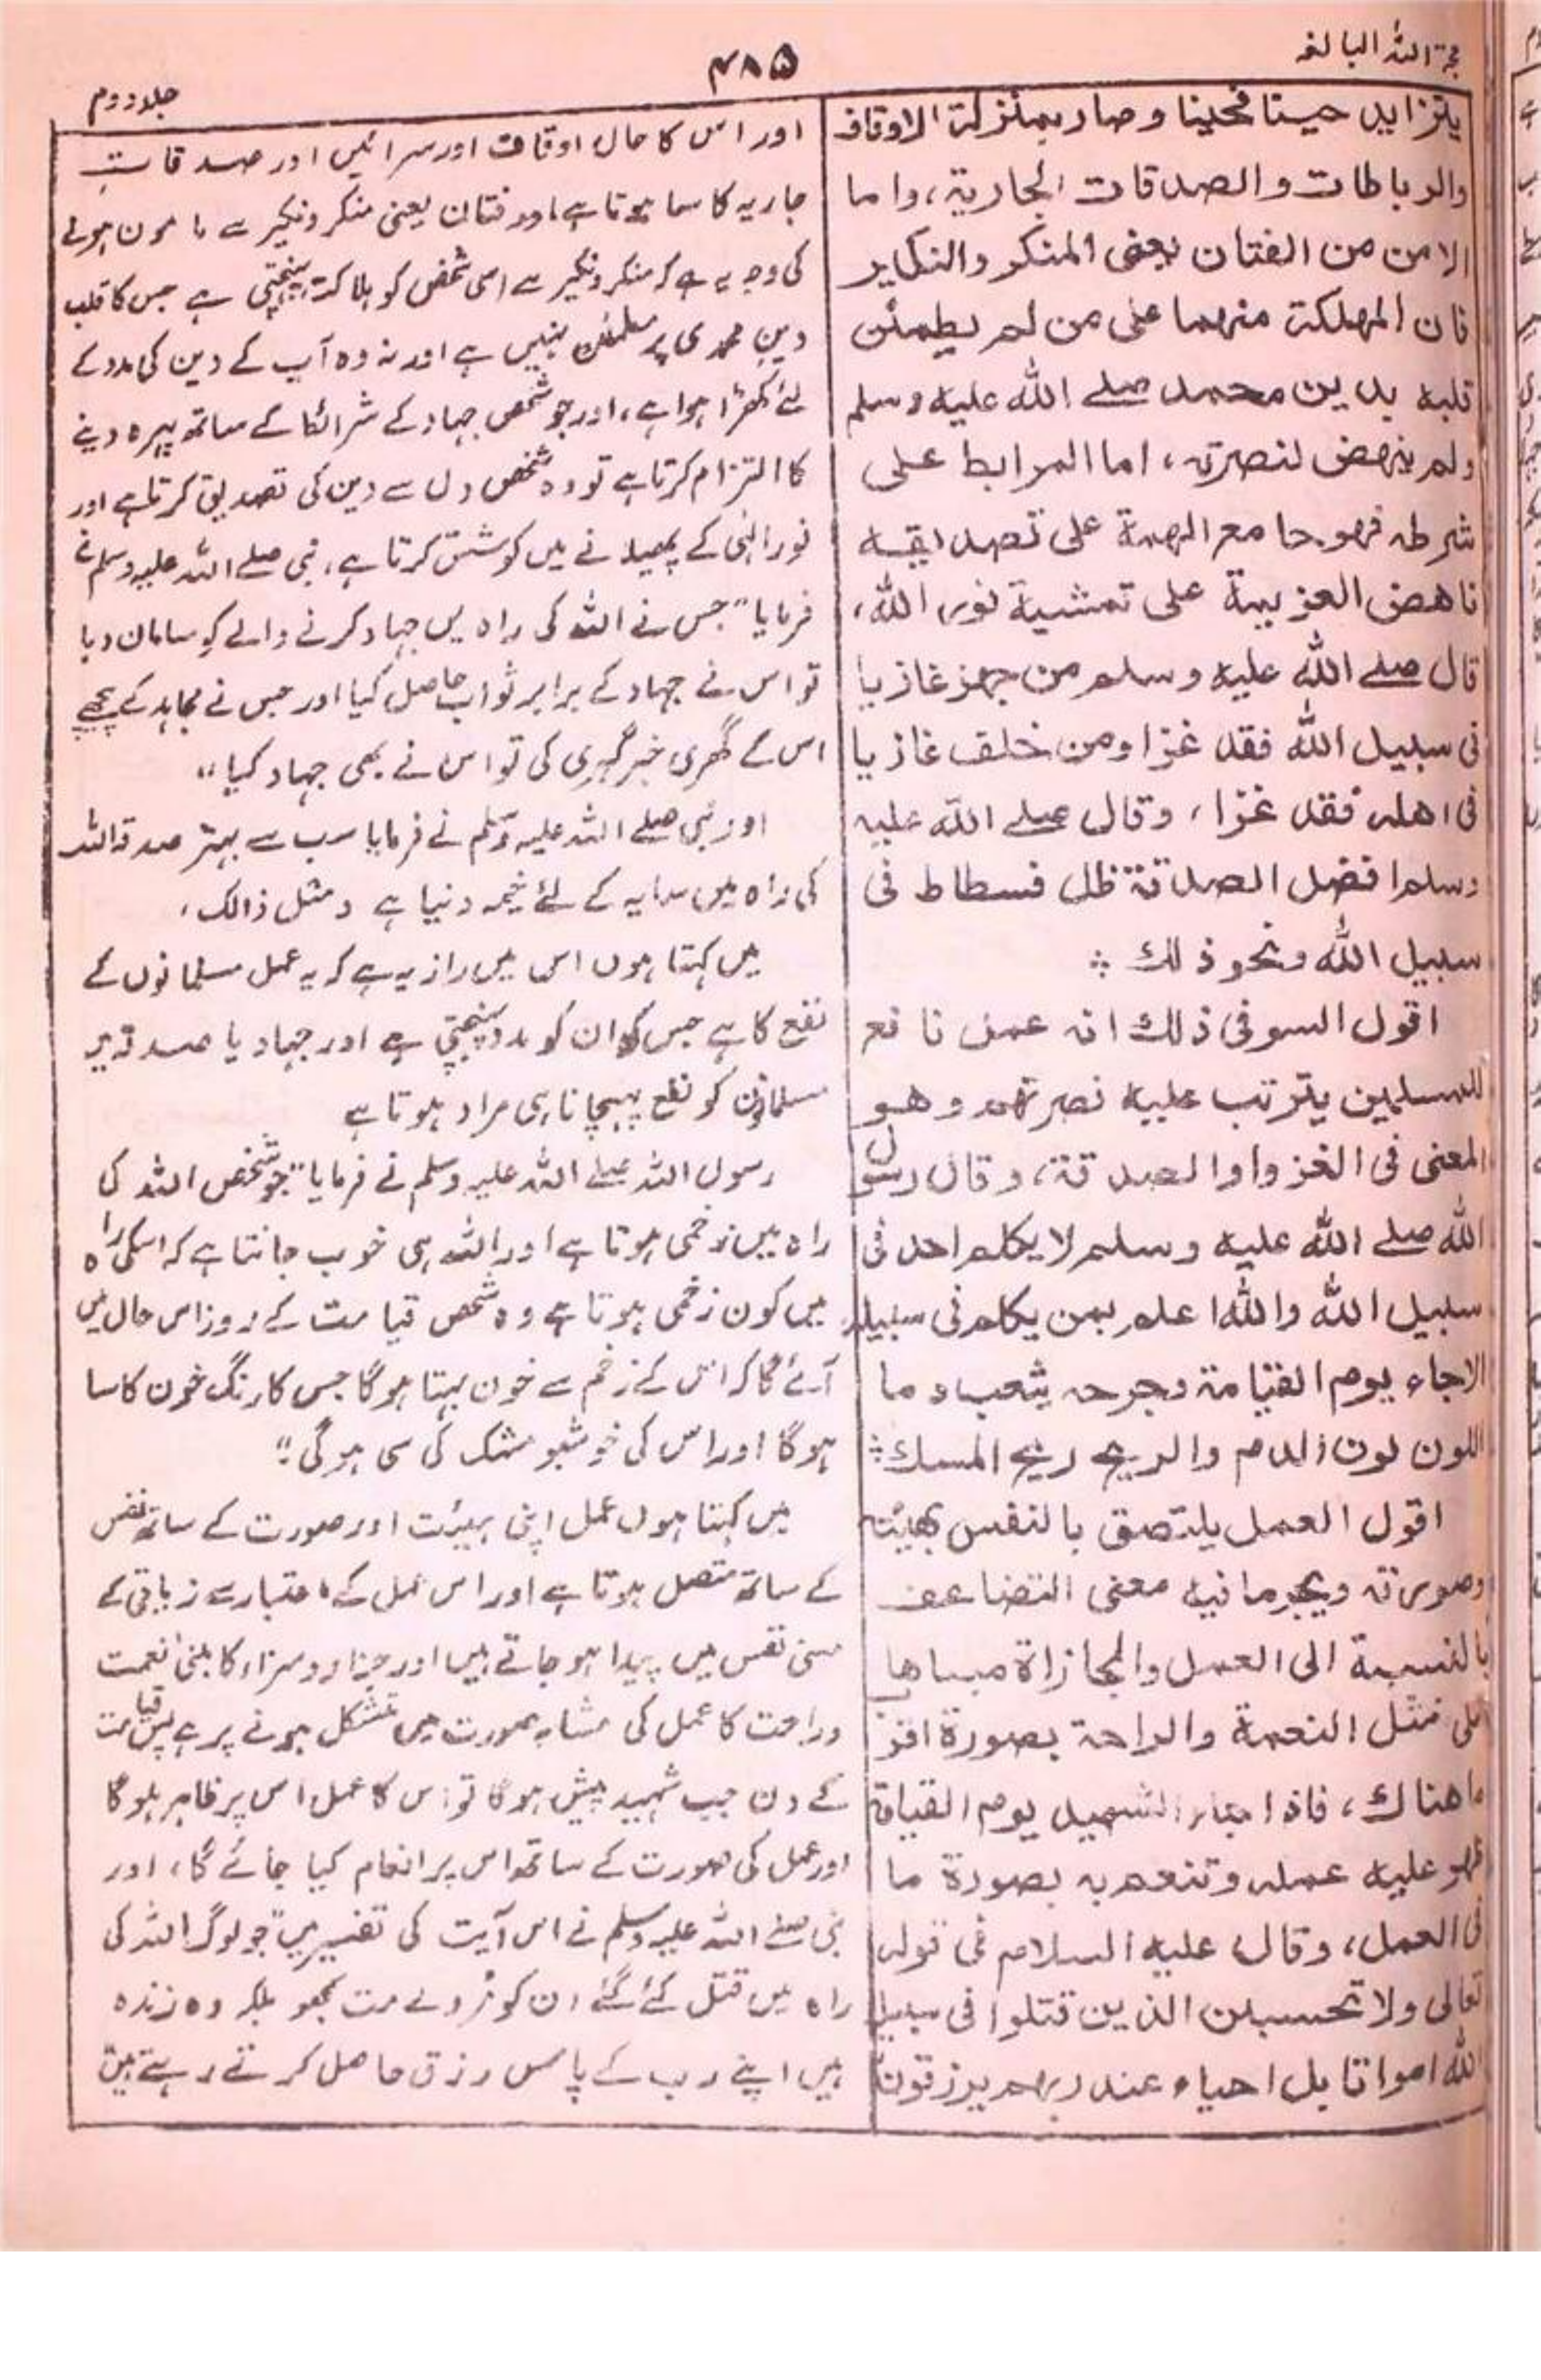 حجة اللہ البالغہ
۴۸۵
جلد دوم
يتزايد حينا فحينا وصار بمنزلة الاوقاف
والرباطات والصدقات الجارية، واما
الامن من الفتان يعنى المنكر والنكير
فان المهلكة منهما على من لم يطمئن
قلبه بدين محمد صلے الله عليه وسلم
ولم ينهض لنصرته، اما المرابط على
شرطه فهو جامع الهمة على تصديقه
ناهض العزيمة على تمشية نور الله،
قال صلے الله عليه وسلم من جهز غازيا
فى سبيل الله فقد غزا ومن خلف غازيا
فى اهله فقد غزا، وقال صلے الله عليه
وسلم افضل الصدقة ظل فسطاط فى
سبيل الله ونحو ذلك ؞
اقول السر فى ذلك انه عمل نافع
للمسلمين يترتب عليه نصرتهم وهو
المعنى فى الغزو او الصدقة، وقال رسول
الله صلے الله عليه وسلم لا يكلم احد فى
سبيل الله والله اعلم بمن يكلم فى سبيله
الا جاء يوم القيامة وجرحه يثعب دما
اللون لون الدم والريح ريح المسك ؞
اقول العمل يلتصق بالنفس بهيئته
وصورته ويجر ما فيه معنى التضاعف
بالنسبة الى العمل والمجازاة مبناها
على تمثل النعمة والراحة بصورة اقرب
ما هناك، فاذا جاء الشهيد يوم القيامة
ظهر عليه عمله وتنعم به بصورة ما
فى العمل، وقال عليه السلام فى قوله
تعالى ولا تحسبن الذين قتلوا فى سبيل
الله امواتا بل احياء عند ربهم يرزقون
اور اس کا حال اوقاف اور سرائیں اور صدقات
جاریہ کا سا ہوتا ہے اور فتان یعنی منکر و نکیر سے مامون ہونے
کی وجہ یہ ہے کہ منکر و نکیر سے اسی شخص کو ہلاکت پہنچتی ہے جس کا قلب
دین محمدی پر مطمئن نہیں ہے اور نہ وہ آپ کے دین کی مدد کے
لئے کھڑا ہوا ہے، اور جو شخص جہاد کے شرائط کے ساتھ پہرہ دینے
کا التزام کرتا ہے تو وہ شخص دل سے دین کی تصدیق کرتا ہے اور
نور الٰہی کے پھیلانے میں کوشش کرتا ہے، نبی صلے اللہ علیہ وسلم نے
فرمایا "جس نے اللہ کی راہ میں جہاد کرنے والے کو سامان دیا
تو اس نے جہاد کے برابر ثواب حاصل کیا اور جس نے مجاہد کے پیچھے
اس کے گھر کی خبر گیری کی تو اس نے بھی جہاد کیا"
اور نبی صلے اللہ علیہ وسلم نے فرمایا سب سے بہتر صدقہ اللہ
کی راہ میں سایہ کے لئے خیمہ دنیا ہے و مثل ذالک،
میں کہتا ہوں اس میں راز یہ ہے کہ یہ عمل مسلمانوں کے
نفع کا ہے جس کو ان کو مدد پہنچتی ہے اور جہاد یا صدقہ میں
مسلمانوں کو نفع پہنچانا ہی مراد ہوتا ہے
رسول اللہ صلے اللہ علیہ وسلم نے فرمایا "جو شخص اللہ کی
راہ میں زخمی ہوتا ہے اور اللہ ہی خوب جانتا ہے کہ اسکی راہ
میں کون زخمی ہوتا ہے وہ شخص قیامت کے روز اس حال میں
آئے گا کہ اس کے زخم سے خون بہتا ہو گا جس کا رنگ خون کا سا
ہو گا اور اس کی خوشبو مشک کی سی ہو گی"
میں کہتا ہوں عمل اپنی ہیئت اور صورت کے ساتھ نفس
کے ساتھ متصل ہوتا ہے اور اس عمل کے اعتبار سے زیاتی کے
معنی نفس میں پیدا ہو جاتے ہیں اور جزاء و سزاء کا مبنیٰ نعمت
وراحت کا عمل کی مشابہ صورت میں متشکل ہونے پر ہے پس قیامت
کے دن جب شہید پیش ہو گا تو اس کا عمل اس پر ظاہر ہو گا
اور عمل کی صورت کے ساتھ اس پر انعام کیا جائے گا، اور
نبی صلے اللہ علیہ وسلم نے اس آیت کی تفسیر میں "جو لوگ اللہ کی
راہ میں قتل کئے گئے ان کو مردے مت سمجھو بلکہ وہ زندہ
ہیں اپنے رب کے پاس رزق حاصل کرتے رہتے ہیں